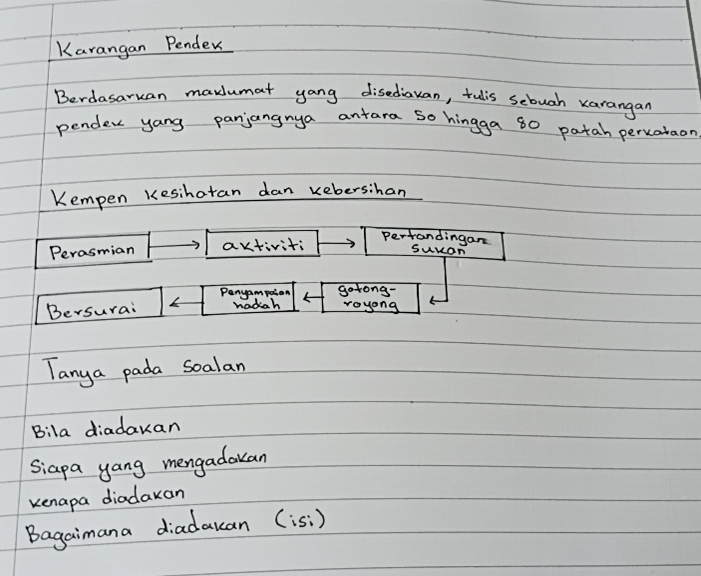 Karangan Pendek
Berdasarkan maklumat yang disediakan, tulis sebuah karangan
pendek yang panjangnya antara 50 hingga 80 patah perkataan.
Kempen kesihatan dan kebersihan
Perasmian → aktiviti → Pertandingan
sukan
Bersurai ← Penyampaian ← gotong-
hadiah royong
Tanya pada soalan
Bila diadakan
Siapa yang mengadakan
kenapa diadakan
Bagaimana diadakan (isi)